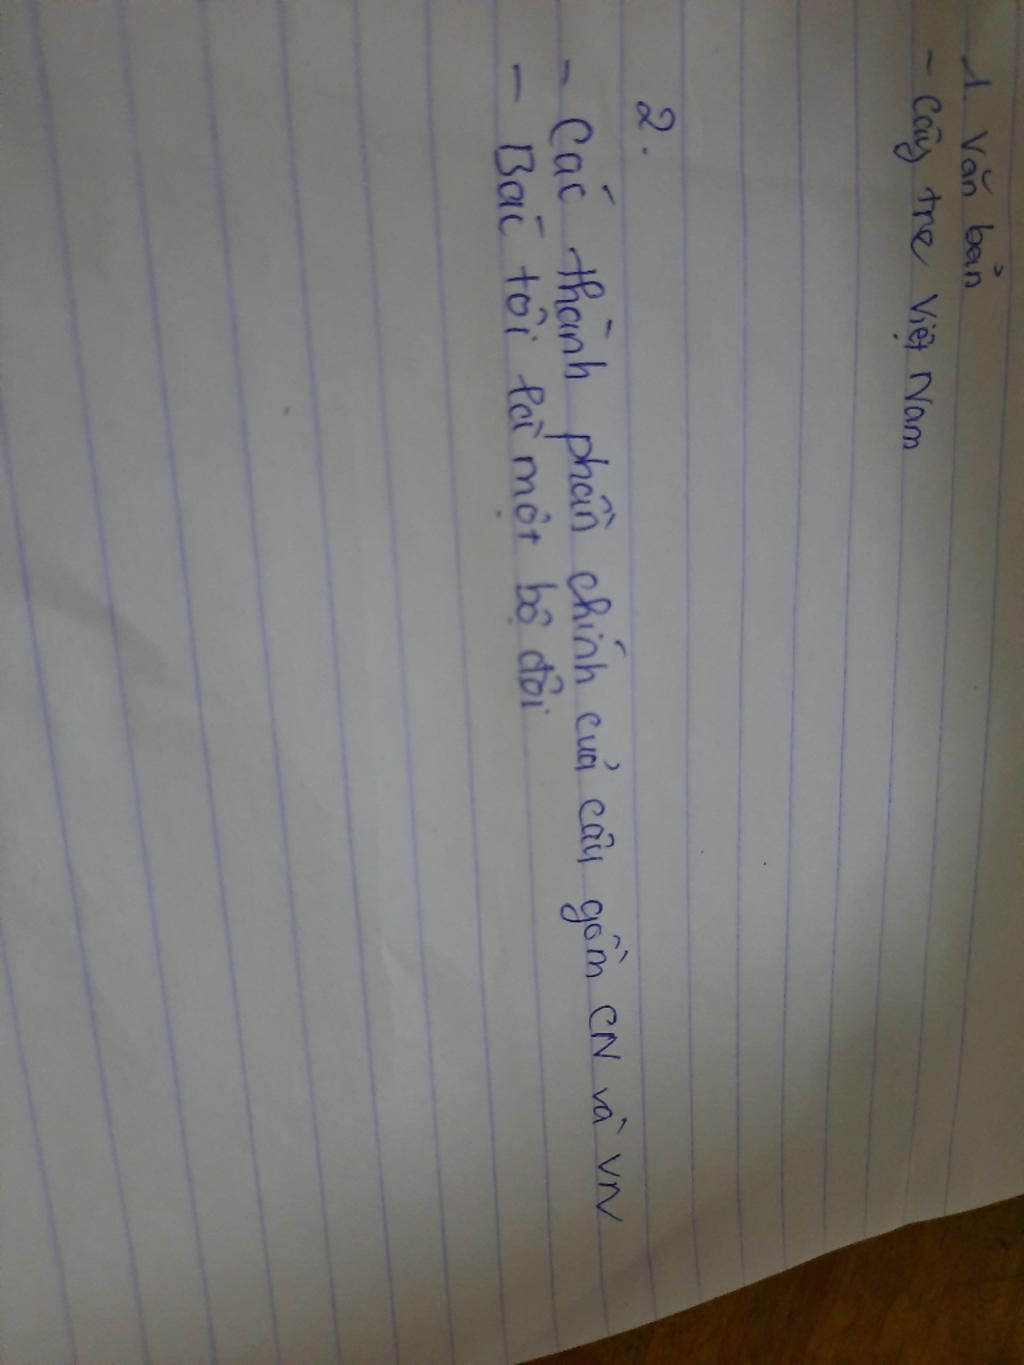 1. Văn bản
- Cây tre Việt Nam
2.
- Các thành phần chính của câu gồm CN và VN
- Bác tôi là một bộ đội